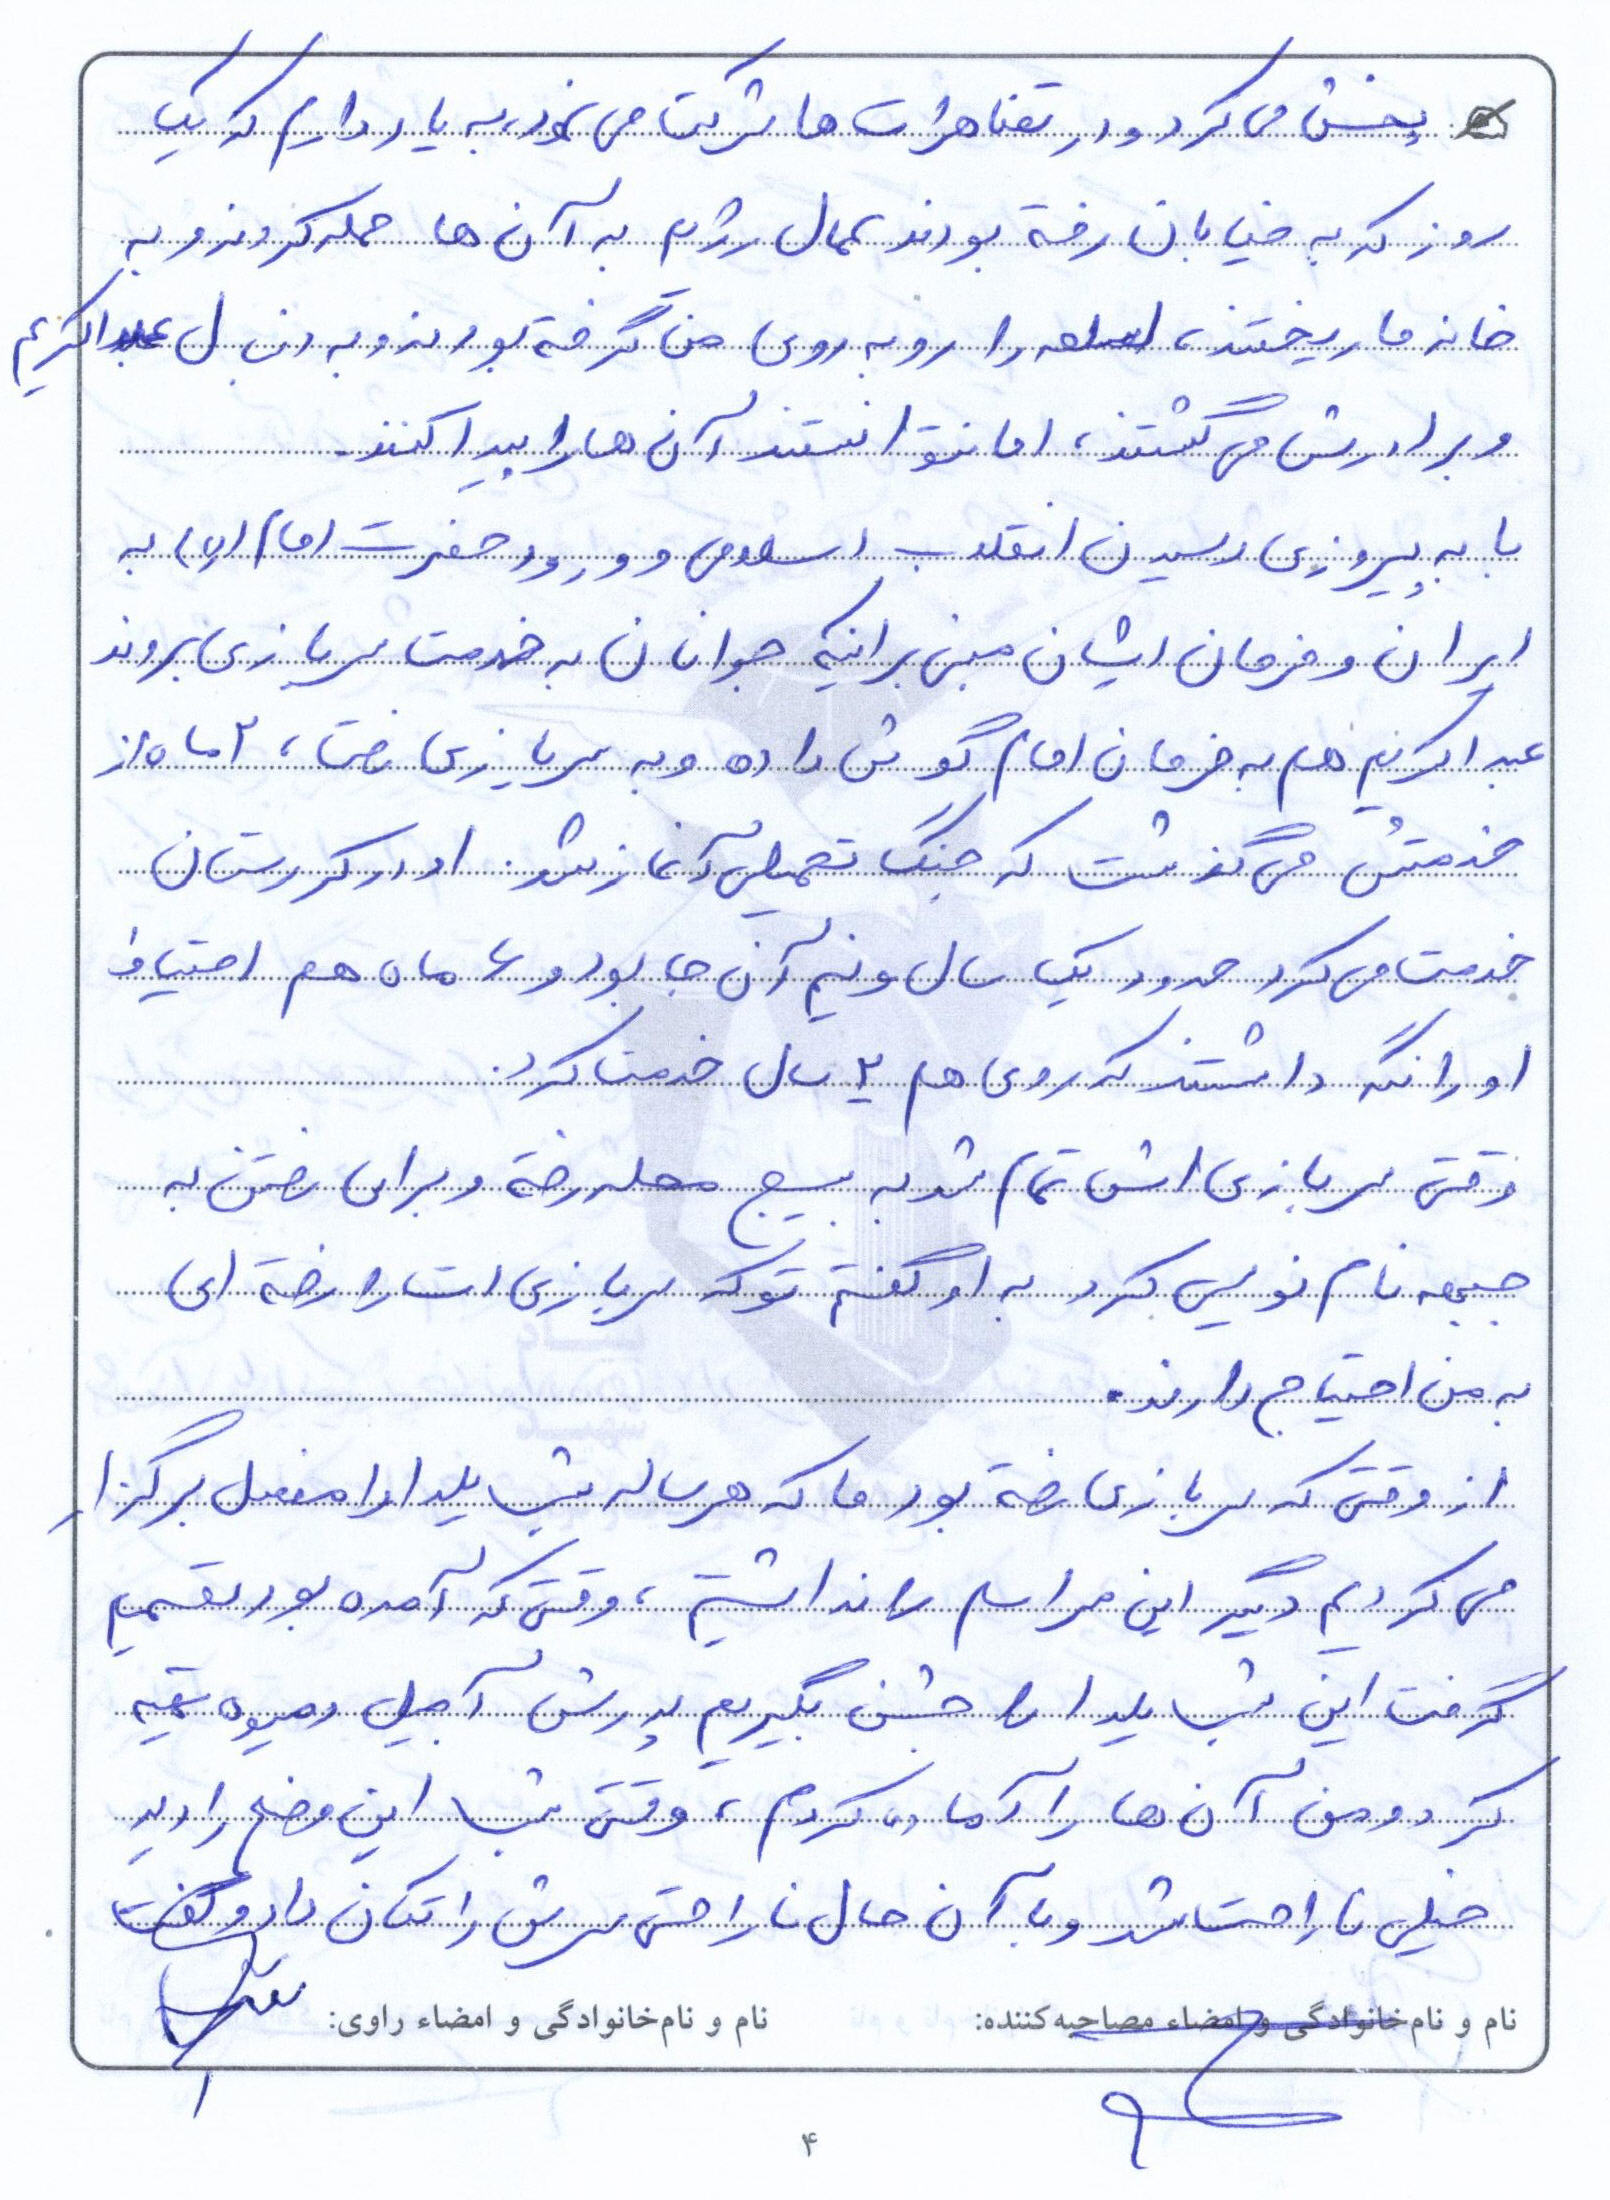 پخش می کرد و در تظاهرات ها شرکت می نمود، به یاد دارم که یک
روز که به خیابان رفته بودند عمال رژیم به آن ها حمله کردند و به
خانه ما ریختند، اسلحه را رو به روی من گرفته بودند و به دنبال عبدالکریم
و برادرش می گشتند، اما نتوانستند آن ها را پیدا کنند.
با به پیروزی رسیدن انقلاب اسلامی و ورود حضرت امام (ره) به
ایران و فرمان ایشان مبنی بر اینکه جوانان به خدمت سربازی بروند
عبدالکریم هم به فرمان امام گوش داده و به سربازی رفت، ۲ ماه از
خدمتش می گذشت که جنگ تحمیلی آغاز شد. او در کردستان
خدمت می کرد حدود یک سال و نیم آن جا بود و ۶ ماه هم احتیاط
او را نگه داشتند که روی هم ۲ سال خدمت کرد.
وقتی سربازی اش تمام شد به بسیج محله رفته و برای رفتن به
جبهه نام نویسی کرد به او گفتم تو که سربازی ات را رفته ای
به من احتیاج دارند.
از وقتی که سربازی رفته بود ما که هر ساله شب یلدا را مفصل برگزار
می کردیم دیگر این مراسم را نداشتیم، وقتی که آمده بود تصمیم
گرفت این شب یلدا را جشن بگیریم پدرش آجیل و میوه تهیه
کرد و من آن ها را آماده کردم، وقتی شب این وضع را دید
خیلی ناراحت شد و با آن حال ناراحتی سرش را تکان داد و گفت
نام و نام‌خانوادگی و امضاء مصاحبه‌کننده: نام و نام‌خانوادگی و امضاء راوی:
۴